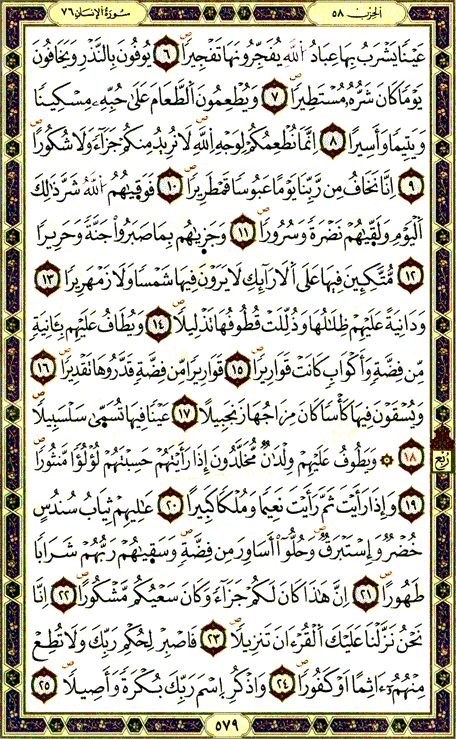 الحِزْب ٥٨
سُورَةُ الإِنسَان ٧٦
عَيْنًا يَشْرَبُ بِهَا عِبَادُ اُ۬للَّهِ يُفَجِّرُونَهَا تَفْجِيرًا ٦ يُوفُونَ بِالنَّذْرِ وَيَخَافُونَ
يَوْمًا كَانَ شَرُّهُۥ مُسْتَطِيرًا ٧ وَيُطْعِمُونَ اَ۬لطَّعَامَ عَلَىٰ حُبِّهِۦ مِسْكِينًا
وَيَتِيمًا وَأَسِيرًا ٨ اِنَّمَا نُطْعِمُكُمْ لِوَجْهِ اِ۬للَّهِ لَا نُرِيدُ مِنكُمْ جَزَآءً وَلَا شُكُورًا
٩ اِنَّا نَخَافُ مِن رَّبِّنَا يَوْمًا عَبُوسًا قَمْطَرِيرًا ١٠ فَوَقَىٰهُمُ اُ۬للَّهُ شَرَّ ذَٰلِكَ
اَ۬لْيَوْمِ وَلَقَّىٰهُمْ نَضْرَةً وَسُرُورًا ١١ وَجَزَىٰهُم بِمَا صَبَرُواْ جَنَّةً وَحَرِيرًا
١٢ مُّتَّكِـِٕينَ فِيهَا عَلَى اَ۬لَارَآئِكِ لَا يَرَوْنَ فِيهَا شَمْسًا وَلَا زَمْهَرِيرًا ١٣
وَدَانِيَةً عَلَيْهِمْ ظِلَٰلُهَا وَذُلِّلَتْ قُطُوفُهَا تَذْلِيلًا ١٤ وَيُطَافُ عَلَيْهِم بِـَٔانِيَةٍ
مِّن فِضَّةٍ وَأَكْوَابٍ كَانَتْ قَوَارِيرًا ١٥ قَوَارِيرًا مِّن فِضَّةٍ قَدَّرُوهَا تَقْدِيرًا ١٦
وَيُسْقَوْنَ فِيهَا كَأْسًا كَانَ مِزَاجُهَا زَنجَبِيلًا ١٧ عَيْنًا فِيهَا تُسَمَّىٰ سَلْسَبِيلًا
١٨ ۞ وَيَطُوفُ عَلَيْهِمْ وِلْدَٰنٌ مُّخَلَّدُونَ إِذَا رَأَيْتَهُمْ حَسِبْتَهُمْ لُؤْلُؤًا مَّنثُورًا
ربع
١٩ وَإِذَا رَأَيْتَ ثَمَّ رَأَيْتَ نَعِيمًا وَمُلْكًا كَبِيرًا ٢٠ عَٰلِيهِمْ ثِيَابُ سُندُسٍ
خُضْرٌ وَإِسْتَبْرَقٌ وَحُلُّوٓاْ أَسَاوِرَ مِن فِضَّةٍ وَسَقَىٰهُمْ رَبُّهُمْ شَرَابًا
طَهُورًا ٢١ اِنَّ هَٰذَا كَانَ لَكُمْ جَزَآءً وَكَانَ سَعْيُكُم مَّشْكُورًا ٢٢ اِنَّا
نَحْنُ نَزَّلْنَا عَلَيْكَ اَ۬لْقُرْءَانَ تَنزِيلًا ٢٣ فَاصْبِرْ لِحُكْمِ رَبِّكَ وَلَا تُطِعْ
مِنْهُمُۥٓ ءَاثِمًا اَوْ كَفُورًا ٢٤ وَاذْكُرِ اِ۪سْمَ رَبِّكَ بُكْرَةً وَأَصِيلًا ٢٥
٥٧٩